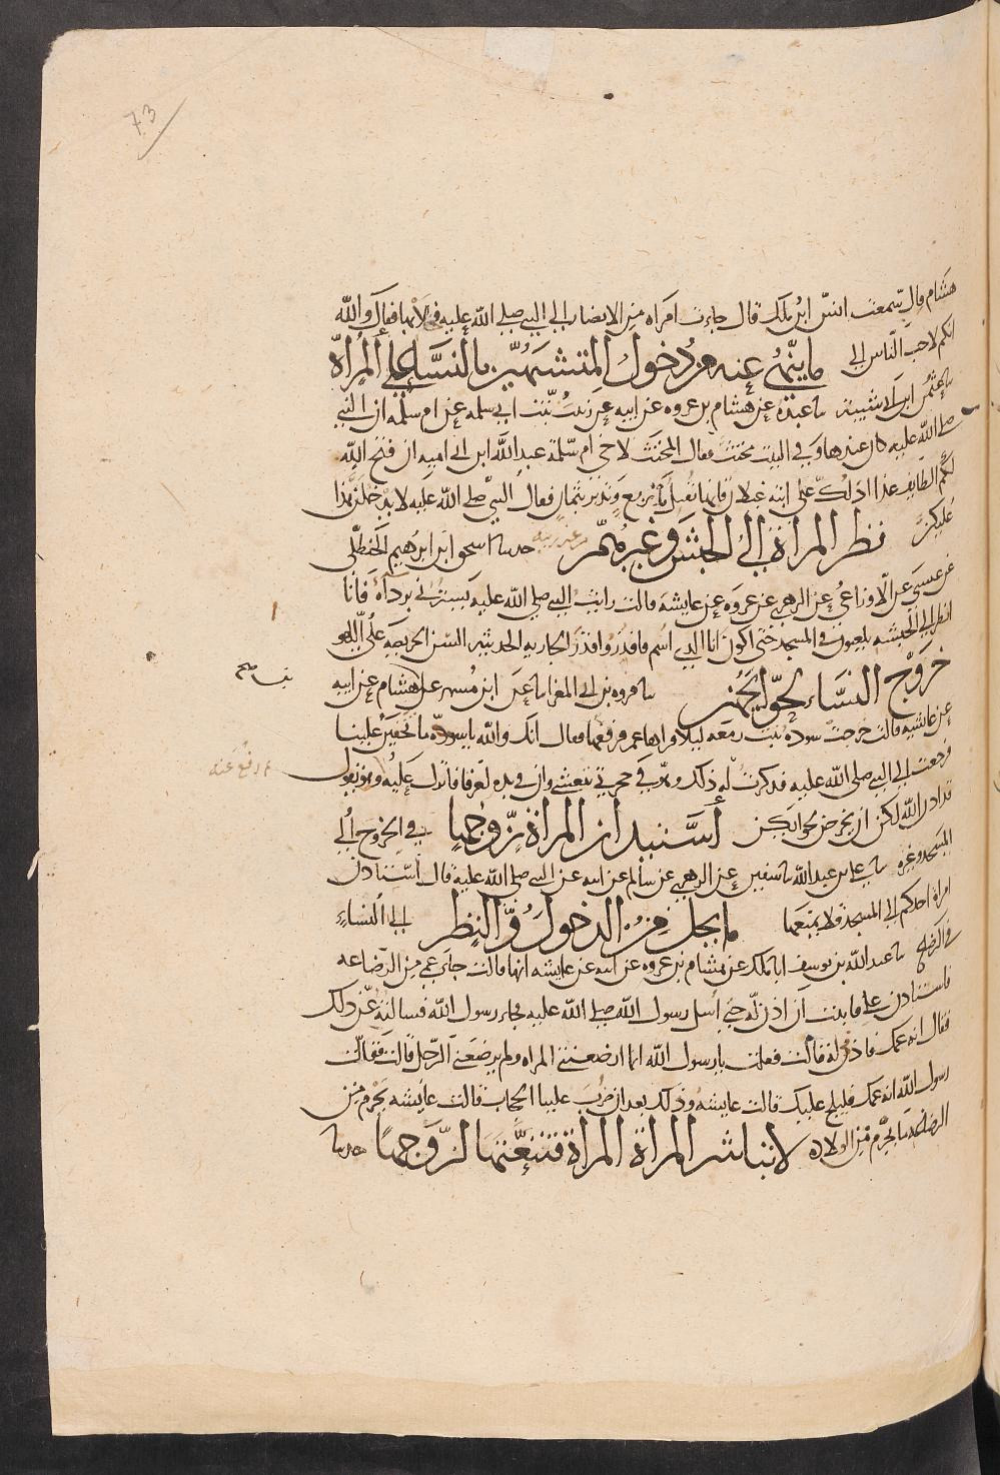 73
هشام قال سمعت انس ابن ملك قال جاءت امراه من الانصار الى النبي صلى الله عليه فخلا بها فقال والله
انكم لاحب الناس الي ما ينهى عنه من دخول المتشبهين بالنساء على المراة
نا عثمن ابن ابي شيبة نا عبدة عن هشام بن عروه عن ابيه عن زينب بنت ابي سلمه عن ام سلمة ان النبي
صلى الله عليه كان عندها وفي البيت مخنث فقال المخنث لاخي ام سلمة عبد الله ابن ابي اميه ان فتح الله
لكم الطايف غدا ادلك على ابنه غيلان فانها تقبل باربع وتدبر بثمان فقال النبي صلى الله عليه لا يدخلن هذا
عليكن نظر المراة الى الحبش وغيرهم من غير ريبه حدثنا اسحق ابن ابرهيم الحنظلي
عن عيسى عن الاوزاعي عن الزهري عن عروه عن عايشة قالت رايت النبي صلى الله عليه يسترني بردآه وانا
انظر الى الحبشه يلعبون في المسجد حتى اكون انا الذي اسم فاقدروا قدر الجاريه الحديثه السن الحريصه على اللهو
خروج النساء لحوايجهن نا فروه بن ابي المغرا نا علي ابن مسهر عن هشام عن ابيه
عن عايشه قالت خرجت سوده بنت زمعه ليلا فراها عمر فعرفها فقال انك والله يا سودة ما تخفين علينا
فرجعت الى النبي صلى الله عليه فذكرت له ذلك وهو في حجرتي يتعشى وان في يده لعرقا فانزل عليه وهو يقول
رفع عنه
قد اذن الله لكن ان تخرجن لحوايجكن استيذان المراة زوجها في الخروج الى
المسجد وغيره نا علي بن عبد الله نا سفين عن الزهري عن سالم عن ابيه عن النبي صلى الله عليه قال اذا استاذنت
امراة احدكم الى المسجد فلا يمنعها ما يحل من الدخول والنظر الى النساء
في الرضاع نا عبد الله بن يوسف انا ملك عن هشام بن عروه عن ابيه عن عايشه انها قالت جاء عمي من الرضاعه
فاستاذن علي فابيت ان اذن له حتى اسل رسول الله صلى الله عليه فجاء رسول الله فسالته عن ذلك
فقال انه عمك فاذني له قالت فقلت يا رسول الله انما ارضعتني المراه ولم يرضعني الرجل قالت فقال
رسول الله انه عمك فليلج عليك قالت عايشه وذلك بعد ان ضرب علينا الحجاب قالت عايشه يحرم من
الرضاعة ما يحرم من الولادة لا تباشر المراة المراة فتنعتها لزوجها حدثنا